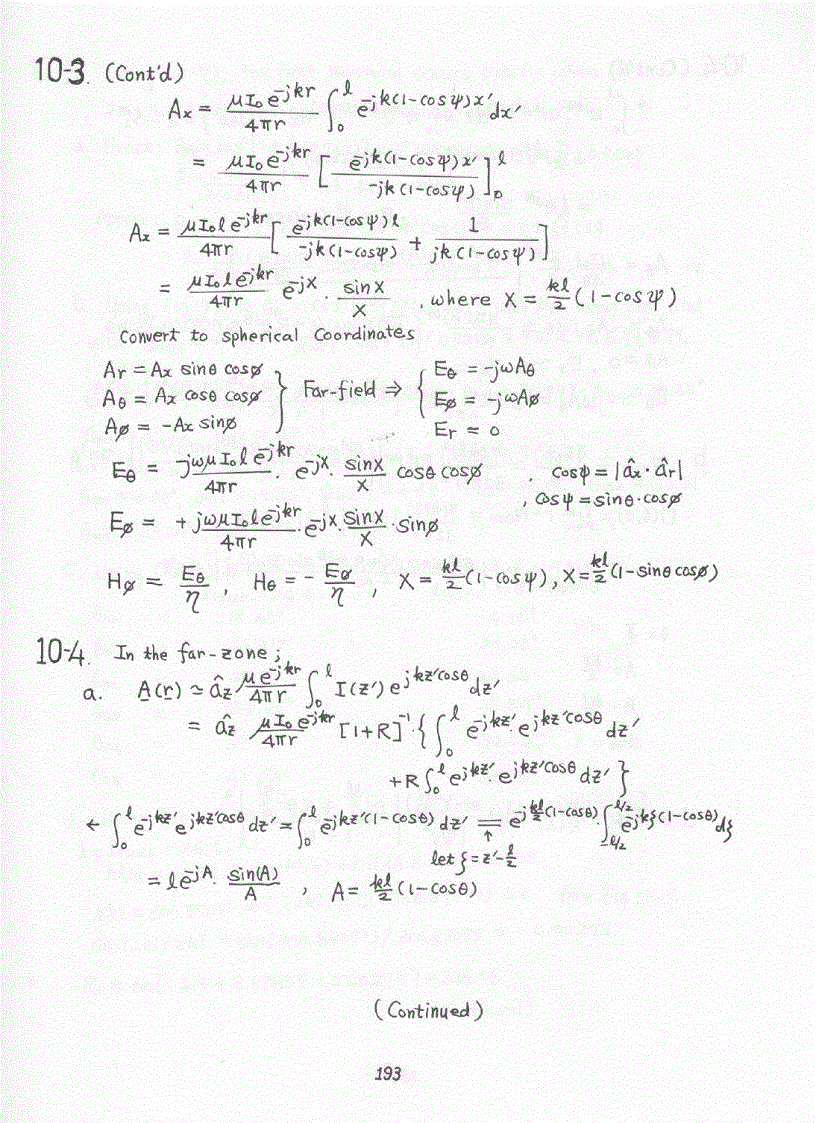 10-3. (Cont'd)
Ax = μI₀e^-jkr / 4πr ∫₀^l e^-jk(1-cosψ)x' dx'
= μI₀e^-jkr / 4πr [ e^-jk(1-cosψ)x' / -jk(1-cosψ) ]₀^l
Ax = μI₀l e^-jkr / 4πr [ e^-jk(1-cosψ)l / -jk(1-cosψ) + 1 / jk(1-cosψ) ]
= μI₀l e^-jkr / 4πr e^-jX · sinX / X , where X = kl/2 (1-cosψ)
Convert to spherical Coordinates
Ar = Ax sinθ cosø
Aθ = Ax cosθ cosø } Far-field ⇒ { Eθ = -jωAθ
Aø = -Ax sinø
Eø = -jωAø
Er = 0
Eθ = -jωμI₀l e^-jkr / 4πr · e^-jX sinX / X cosθ cosø , cosψ = |âx · âr|
, cosψ = sinθ·cosø
Eø = +jωμI₀l e^-jkr / 4πr · e^-jX · sinX / X · sinø
Hø = Eθ / η , Hθ = - Eø / η , X = kl/2 (1-cosψ), X = kl/2 (1-sinθ cosø)
10-4. In the far-zone;
a. A(r) ≃ âz μe^-jkr / 4πr ∫₀^l I(z') e^jkz'cosθ dz'
= âz μI₀e^-jkr / 4πr [1+R]^-1 · { ∫₀^l e^-jkz' · e^jkz'cosθ dz'
+R ∫₀^l e^jkz' · e^jkz'cosθ dz' }
← ∫₀^l e^-jkz' e^jkz'cosθ dz' = ∫₀^l e^-jkz'(1-cosθ) dz' = e^-j kl/2 (1-cosθ) · ∫_-l/2^l/2 e^-jkξ(1-cosθ) dξ
↑
let ξ = z' - l/2
= l e^-jA · sin(A) / A , A = kl/2 (1-cosθ)
(Continued)
193